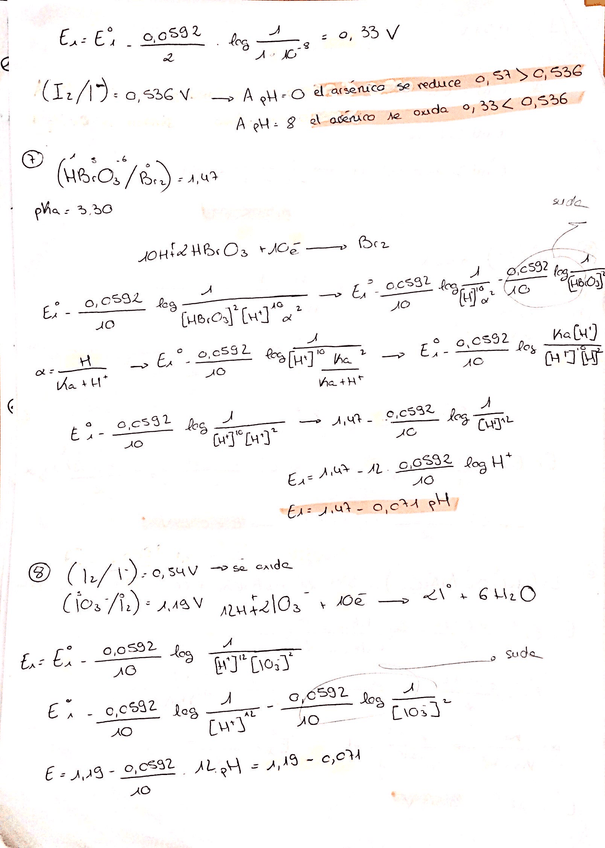 E₁ = E°₁ - 0,0592/2 · log 1/1·10⁻⁸ = 0,33 V
(I₂/I⁻) = 0,536 V. → A pH=0 el arsénico se reduce 0,57 > 0,536
A pH = 8 el asénico se oxida 0,33 < 0,536
⑦ (HBrO₃/Br₂) = 1,47
pKa = 3.30
suda
10H⁺+2HBrO₃ + 10e⁻ → Br₂
E₁° - 0,0592/10 log 1/[HBrO₃]²[H⁺]¹⁰α² → E₁° - 0,0592/10 log 1/[H]¹⁰α² - 0,0592/10 log 1/[HBrO₃]²
α = H/Ka + H⁺ → E₁° - 0,0592/10 log 1/[H⁺]¹⁰ Ka²/Ka+H⁺ → E₁° - 0,0592/10 log Ka[H⁺]/[H⁺]¹⁰[H]²
E₁° - 0,0592/10 log 1/[H⁺]¹⁰[H⁺]² → 1,47 - 0,0592/10 log 1/[H⁺]¹²
E₁ = 1,47 - 12 · 0,0592/10 log H⁺
E₁ = 1,47 - 0,071 pH
⑧ (I₂/I⁻) = 0,54V → se oxida
(IO₃⁻/I₂) = 1,19 V 12H⁺+2IO₃⁻ + 10e⁻ → 2I° + 6H₂O
E₁ = E₁° - 0,0592/10 log 1/[H⁺]¹²[IO₃]²
suda
E₁° - 0,0592/10 log 1/[H⁺]¹² - 0,0592/10 log 1/[IO₃⁻]²
E = 1,19 - 0,0592/10 · 12 pH = 1,19 - 0,071